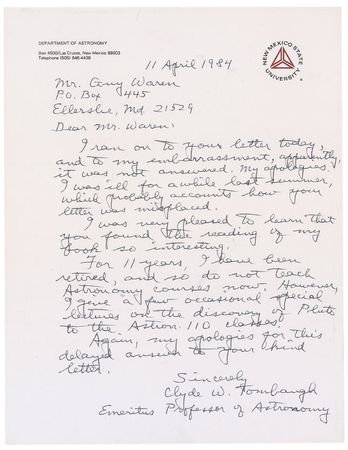 DEPARTMENT OF ASTRONOMY
Box 4500/Las Cruces, New Mexico 88003
Telephone (505) 646-4438
NEW MEXICO STATE UNIVERSITY
11 April 1984
Mr. Guy Waren
P.O. Box 445
Ellerslie, Md. 21529
Dear Mr. Waren:
I ran on to your letter today,
and to my embarrassment, apparently,
it was not answered. My apologies.
I was ill for a while last summer,
which probably accounts how your
letter was misplaced.
I was very pleased to learn that
you found the reading of my
book so interesting.
For 11 years, I have been
retired, and so do not teach
Astronomy courses now. However,
I give a few occasional special
lectures on the discovery of Pluto
to the Astron. 110 classes.
Again, my apologies for this
delayed answer to your kind
letter.
Sincerely
Clyde W. Tombaugh
Emeritus Professor of Astronomy